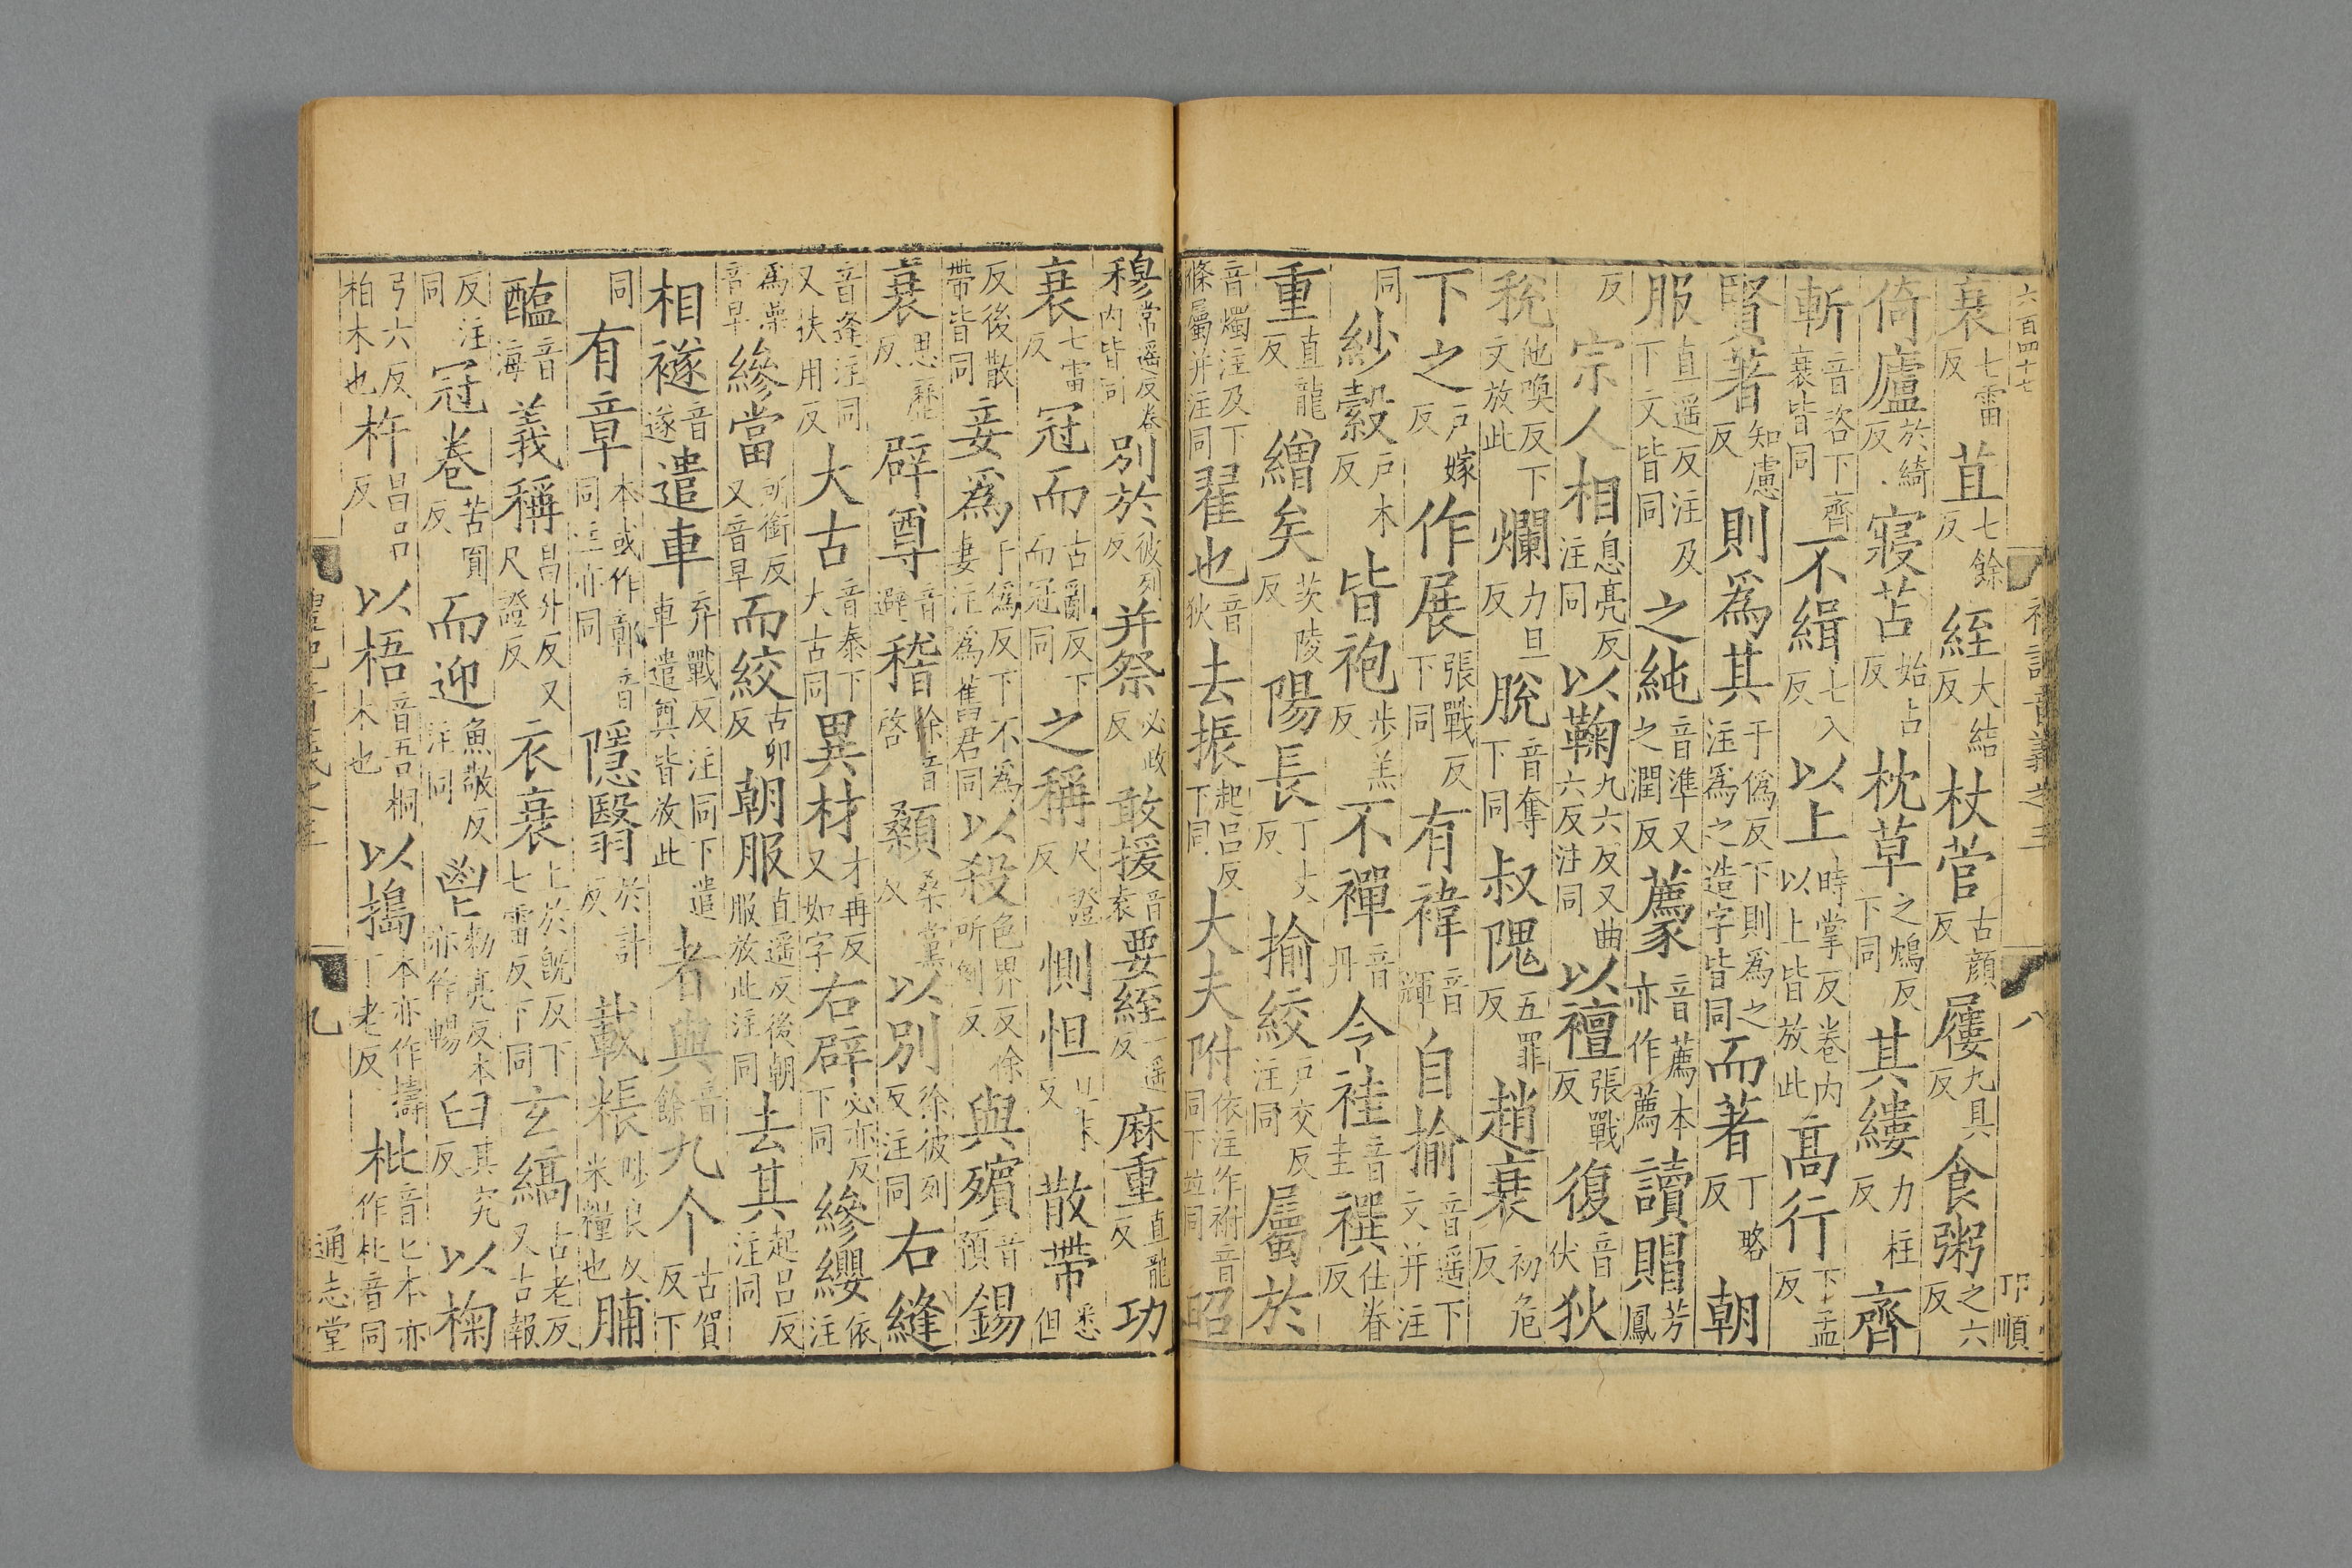 六百四十七 禮記音義之三 八 卭順
衰七雷反苴七餘反絰大結反杖菅古顔反屨九具反食粥之六反
倚廬於綺反寢苫始占反枕草之鴆反下同其縷力柱反齊
斬音咨下齊衰皆同不緝七入反以上時掌反卷内以上皆放此高行下孟反
賢著知慮反則爲其于僞反下則爲之注爲之造字皆同而著丁略反朝
服直遥反注及下文皆同之純音準又之潤反藨音薦本亦作薦讀賵芳鳳
反宗人相息亮反注同以鞠九六反又曲六反注同以襢張戰反復音伏狄
稅他喚反下文放此爛力旦反脫音奪下同叔隗五罪反趙衰初危反
下之戶嫁反作展張戰反下同有褘音輝自揄音遥下文并注
同紗縠戶木反皆袍步羔反不襌音丹今袿音圭襈仕眷反
重直龍反繒矣茨陵反陽長丁丈反揄絞戶交反注同屬於
音燭注及下條屬并注同翟也音狄去振起呂反下同大夫附依注作祔音同下並同昭
穆常遥反卷内皆同别於彼列反并祭必政反敢援音袁要絰一遥反麻重直龍反功
衰七雷反冠而古亂反下而冠同之稱尺證反惻怛旦末反散帶悉但
反後散帶皆同妾爲于僞反下不爲妻注爲舊君同以殺色界反徐所例反與殯音預錫
衰思歷反辟尊音避稽徐音啓顙桑黨反以别徐彼列反注同右縫
音逢注同又扶用反大古音泰下大古同異材才再反又如字右辟必亦反下同縿纓依注
爲澡音早縿當所銜反又音早而絞古卯反朝服直遥反後朝服放此注同去其起呂反注同
相襚音遂遣車弃戰反注同下遣車遣奠皆放此者與音餘九个古賀反下
同有章本或作鄣音同注亦同隱翳於計反載粻陟良反米糧也脯
醢音海義稱昌升反又尺證反衣衰上於旣反下七雷反下同玄縞古老反又古報
反注同冠卷苦圓反而迎魚敬反注同鬯勑亮反本亦作暢臼其究反以椈
弓六反柏木也杵昌呂反以梧音吾桐木也以擣本亦作擣丁老反枇音匕本亦作朼音同
禮記音義之三 九 通志堂